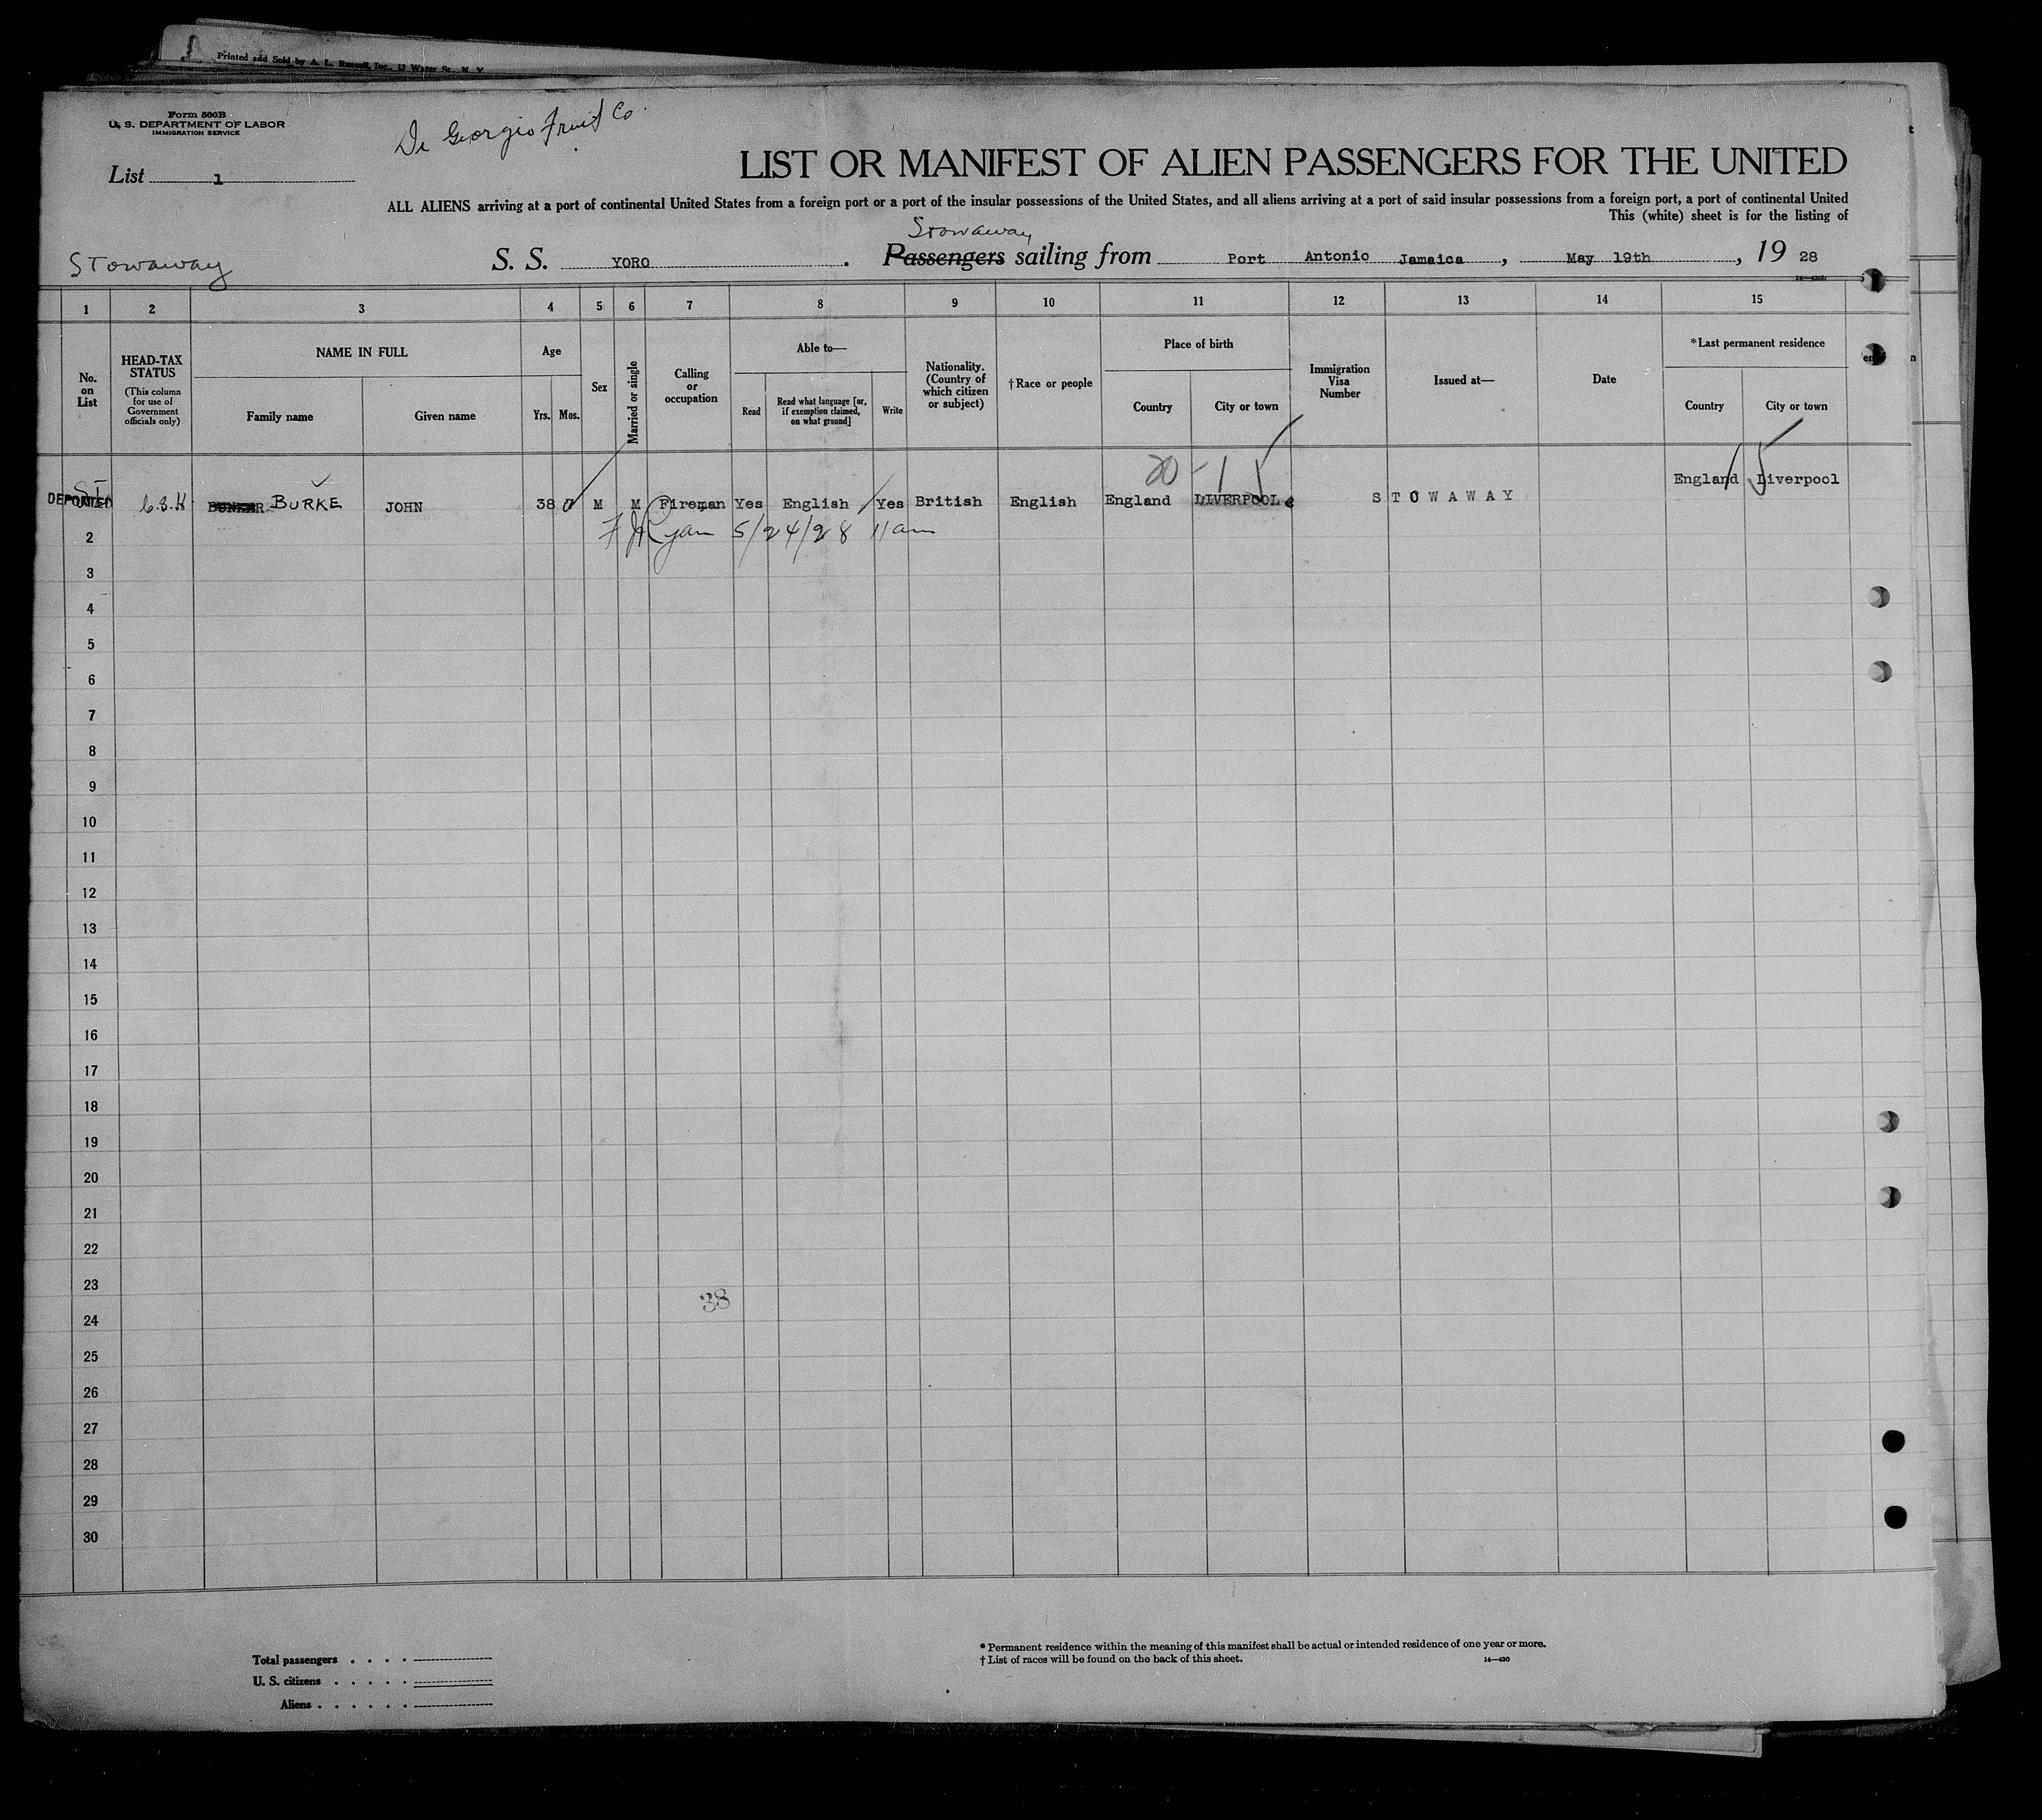 Printed and Sold by A. L. Russell, Inc., 12 Water St., N. Y.
Form 500B
U. S. DEPARTMENT OF LABOR
IMMIGRATION SERVICE
Di Georgio Fruit Co
List 1
LIST OR MANIFEST OF ALIEN PASSENGERS FOR THE UNITED
ALL ALIENS arriving at a port of continental United States from a foreign port or a port of the insular possessions of the United States, and all aliens arriving at a port of said insular possessions from a foreign port, a port of continental United
This (white) sheet is for the listing of
Stowaway
Stowaway S. S. YORO. Passengers sailing from Port Antonio Jamaica, May 19th, 19 28
1 2 3 4 5 6 7 8 9 10 11 12 13 14 15
No. on List
HEAD-TAX STATUS
(This column for use of Government officials only)
NAME IN FULL
Family name Given name
Age
Yrs. Mos.
Sex
Married or single
Calling or occupation
Able to—
Read
Read what language [or, if exemption claimed, on what ground]
Write
Nationality. (Country of which citizen or subject)
†Race or people
Place of birth
Country City or town
Immigration Visa Number
Issued at—
Date
*Last permanent residence
Country City or town
20 - 1
England Liverpool
DEPORTED BURKE JOHN 38 M M Fireman Yes English Yes British English England LIVERPOOL STOWAWAY
F J Ryan 5/24/28 11am
2
3
4
5
6
7
8
9
10
11
12
13
14
15
16
17
18
19
20
21
22
23
38
24
25
26
27
28
29
30
Total passengers . . . .
U. S. citizens . . . . .
Aliens . . . . . .
* Permanent residence within the meaning of this manifest shall be actual or intended residence of one year or more.
† List of races will be found on the back of this sheet.
14—430